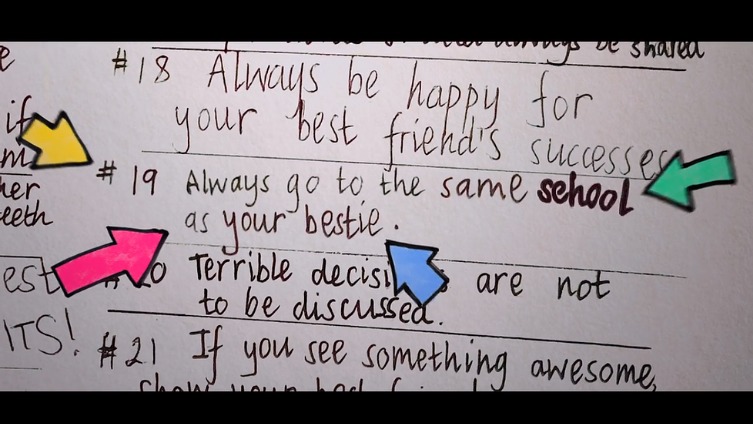 always be shared
# 18 Always be happy for
your best friend's successes
if
# 19 Always go to the same school
as your bestie.
eeth
Terrible are not
est
to be discussed.
ITS!
# 21 If you see something awesome,